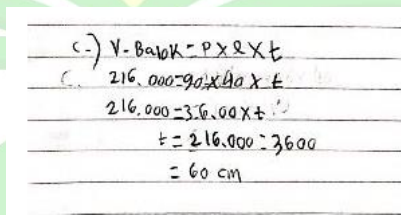 c.) V. Balok = P x l x t
216.000 = 90 x 40 x t
216.000 = 36.00 x t
t = 216.000 : 3600
= 60 cm